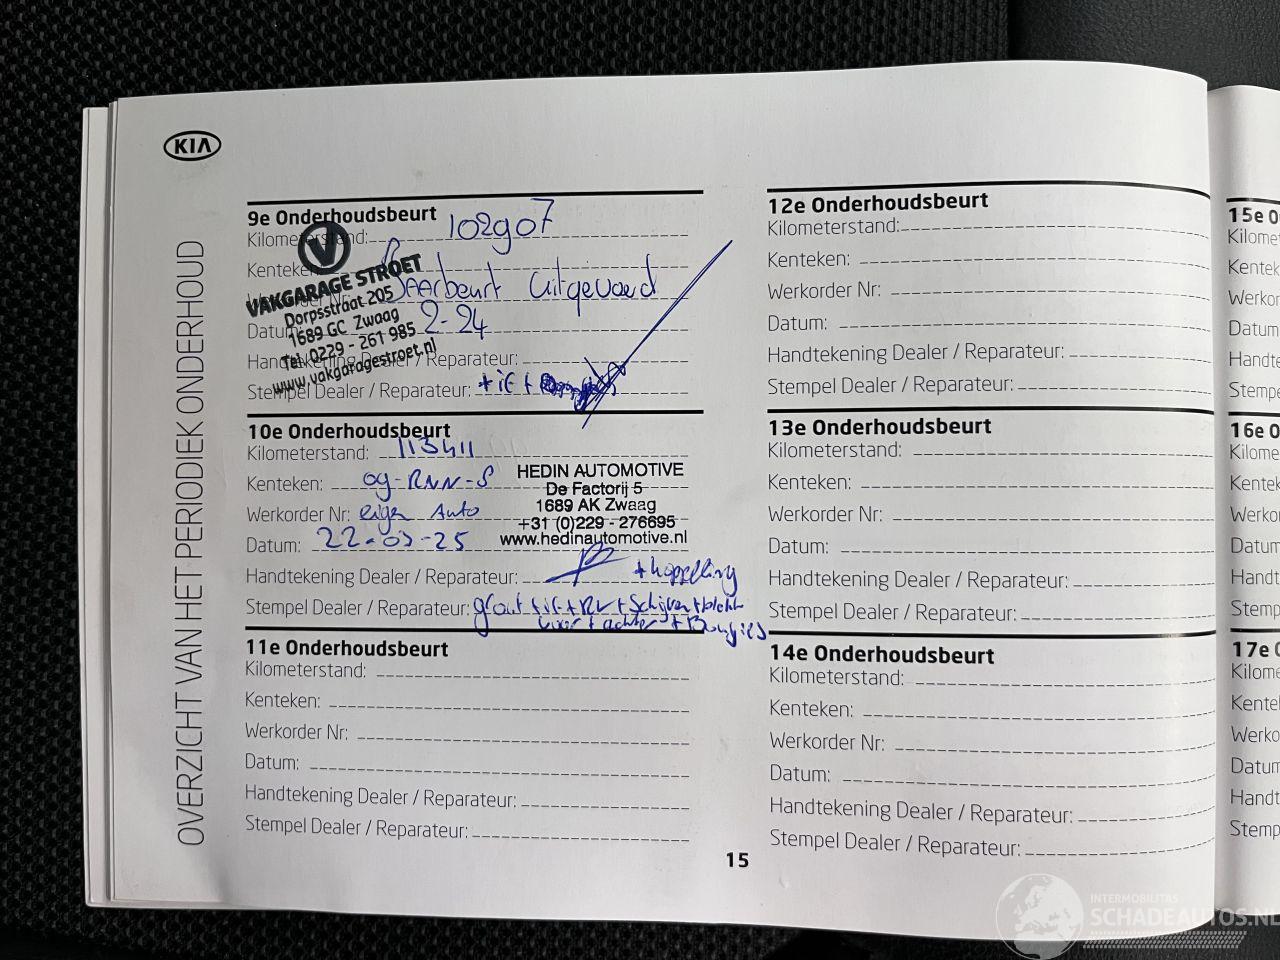 KIA
OVERZICHT VAN HET PERIODIEK ONDERHOUD
9e Onderhoudsbeurt
Kilometerstand: 102907
Kenteken:
Jaarbeurt uitgevoerd
Datum: 2-24
Handtekening Dealer / Reparateur:
Stempel Dealer / Reparateur: + iF +
V
VAKGARAGE STROET
Dorpsstraat 205
1689 GC Zwaag
Tel. 0229 - 261 985
www.vakgaragestroet.nl
10e Onderhoudsbeurt
Kilometerstand: 113411
Kenteken: 0g-RNN-S
Werkorder Nr: eigen Auto
Datum: 22-03-25
Handtekening Dealer / Reparateur: + koppeling
Stempel Dealer / Reparateur: groot + iF + RV + Schijven + blokken
voor + achter + Bougies
HEDIN AUTOMOTIVE
De Factorij 5
1689 AK Zwaag
+31 (0)229 - 276695
www.hedinautomotive.nl
11e Onderhoudsbeurt
Kilometerstand:
Kenteken:
Werkorder Nr:
Datum:
Handtekening Dealer / Reparateur:
Stempel Dealer / Reparateur:
12e Onderhoudsbeurt
Kilometerstand:
Kenteken:
Werkorder Nr:
Datum:
Handtekening Dealer / Reparateur:
Stempel Dealer / Reparateur:
13e Onderhoudsbeurt
Kilometerstand:
Kenteken:
Werkorder Nr:
Datum:
Handtekening Dealer / Reparateur:
Stempel Dealer / Reparateur:
14e Onderhoudsbeurt
Kilometerstand:
Kenteken:
Werkorder Nr:
Datum:
Handtekening Dealer / Reparateur:
Stempel Dealer / Reparateur:
15
15e O
Kilomet
Kentek
Werkor
Datum
Handte
Stempe
16e O
Kilome
Kentek
Werkor
Datum
Handte
Stemp
17e O
Kilome
Kentel
Werko
Datum
Handt
Stemp
INTERMOBILITAS
SCHADEAUTOS.NL